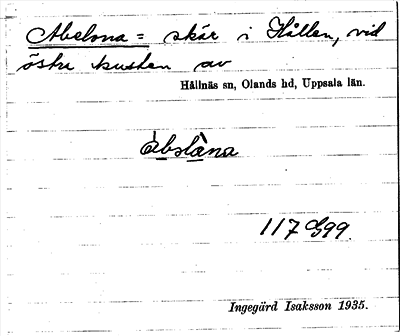 Abelona = skär i Hållen, vid
östra kusten av
Hållnäs sn, Olands hd, Uppsala län.
117 G99
Ingegärd Isaksson 1935.